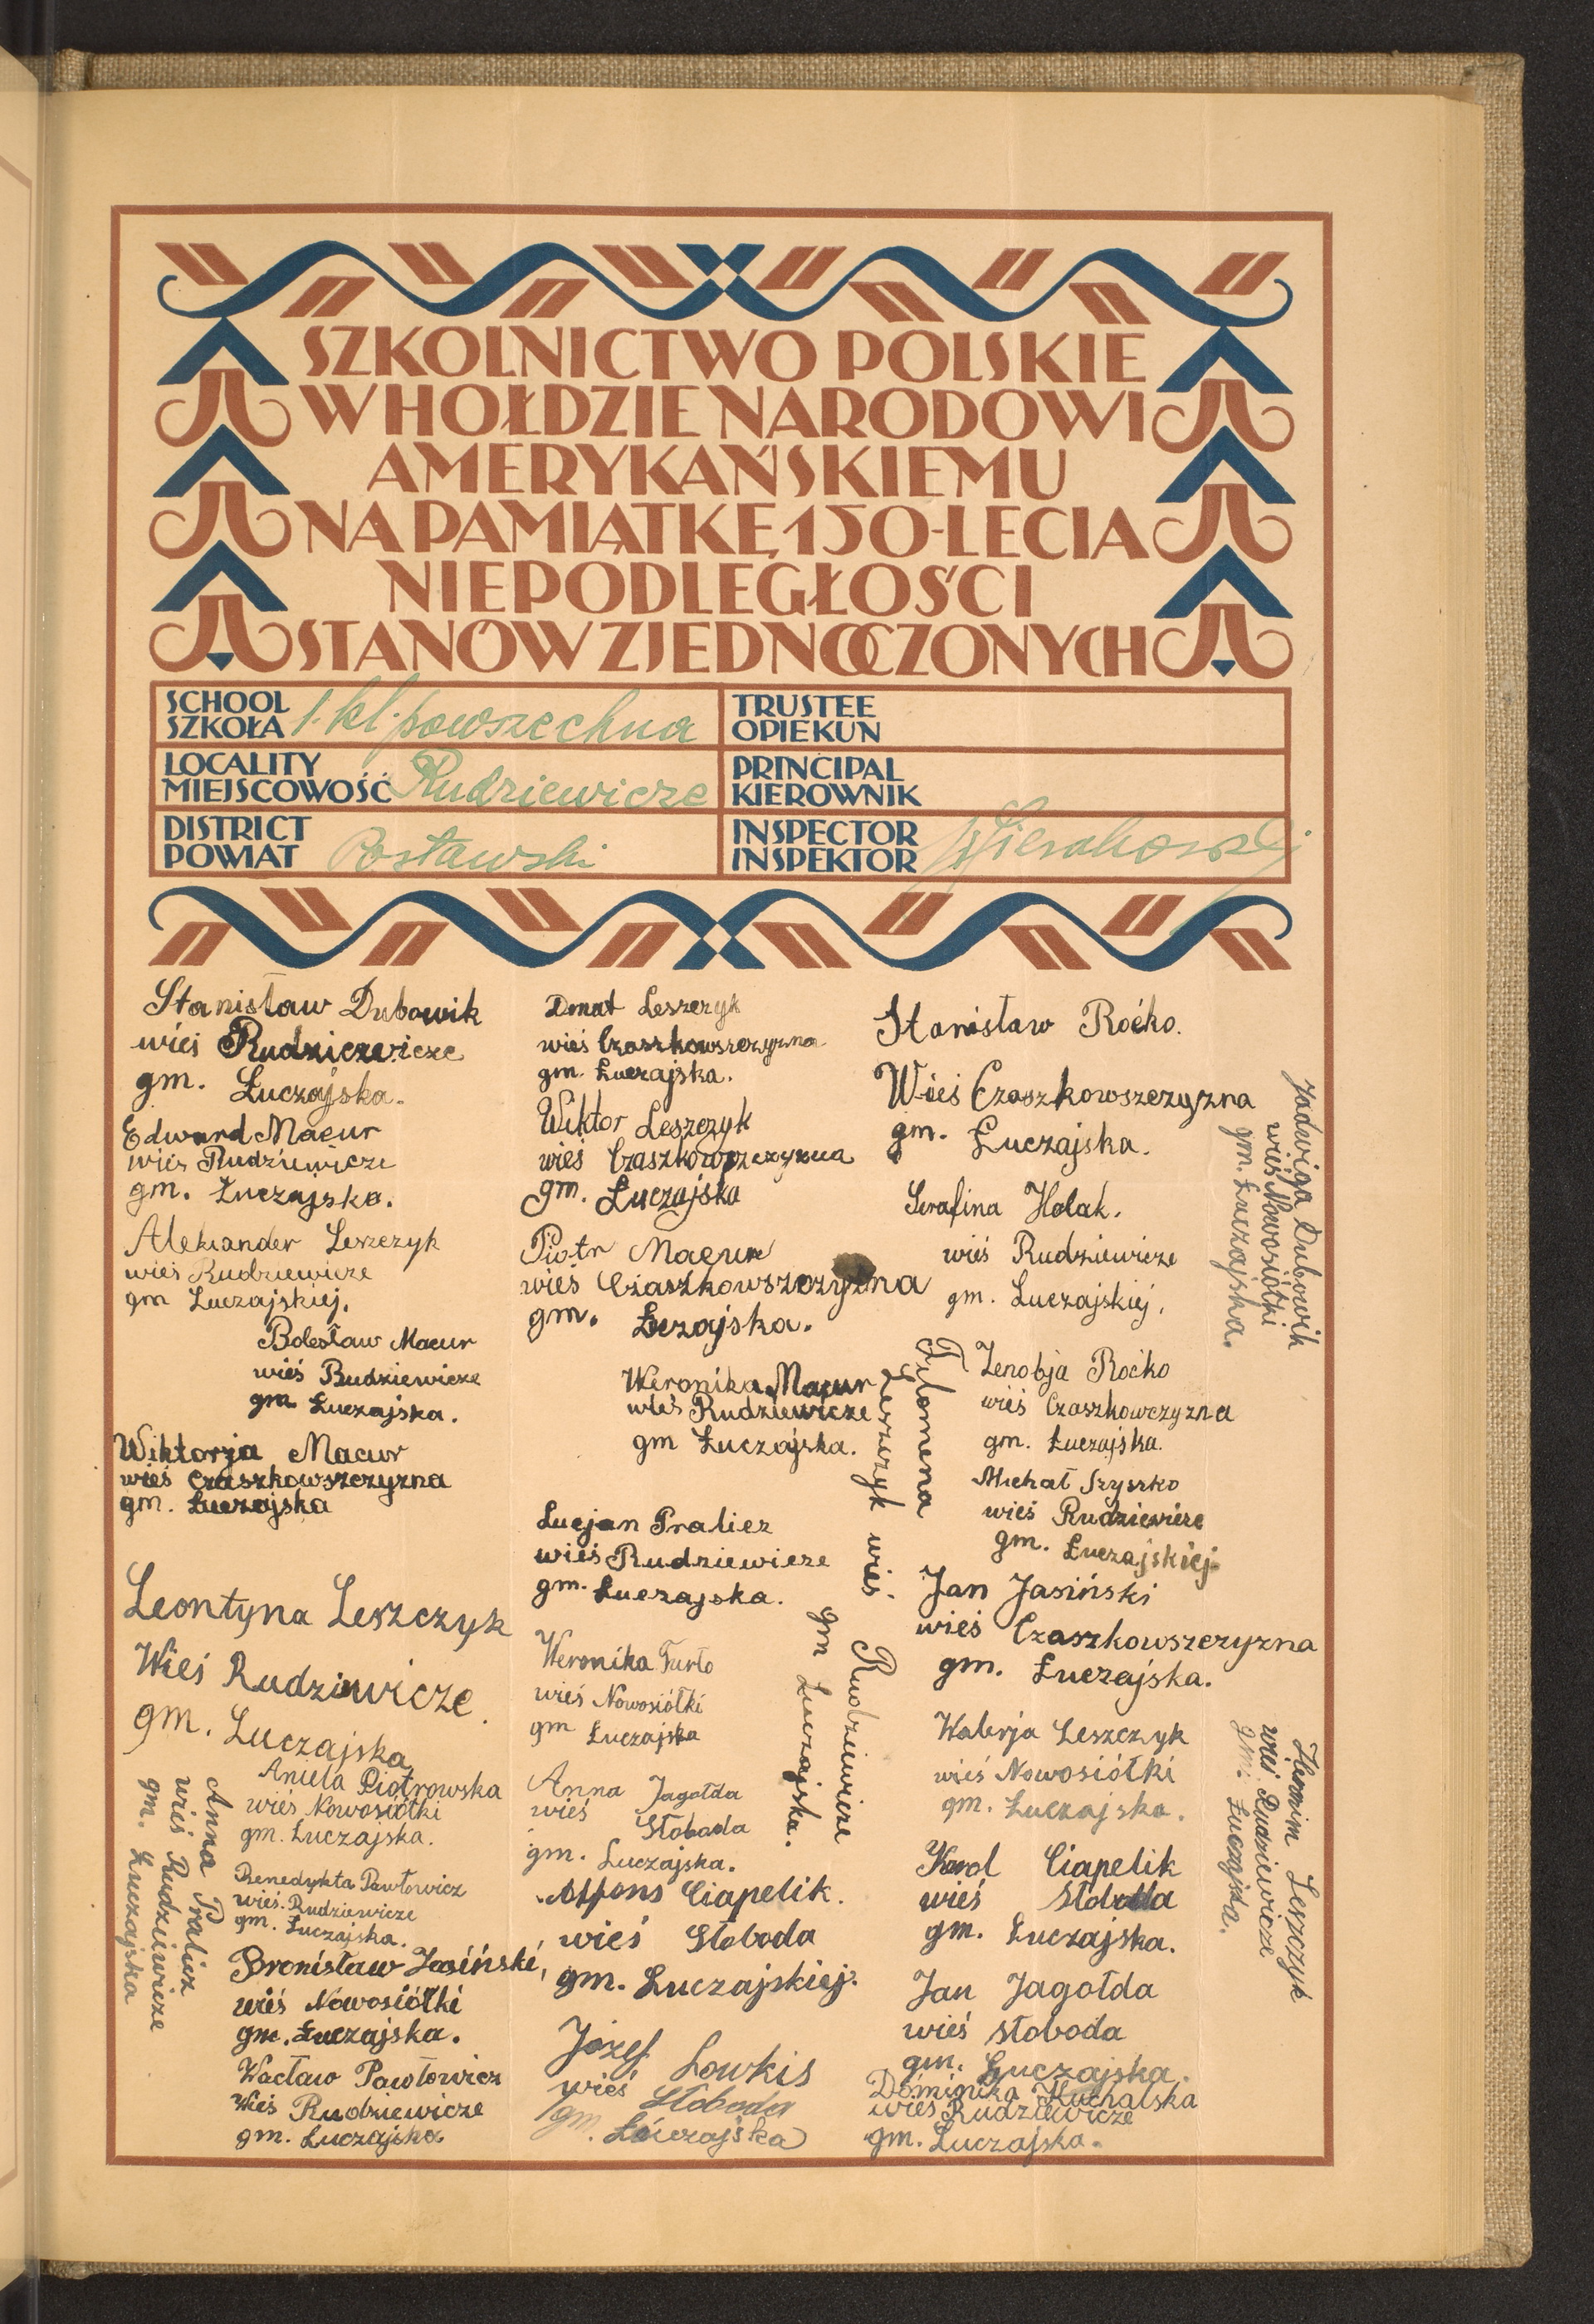 SZKOLNICTWO POLSKIE
W HOŁDZIE NARODOWI
AMERYKAŃSKIEMU
NA PAMIĄTKĘ 150-LECIA
NIEPODLEGŁOŚCI
STANÓW ZJEDNOCZONYCH
SCHOOL
SZKOŁA 1. kl. powszechna
TRUSTEE
OPIEKUN
LOCALITY
MIEJSCOWOŚĆ Rudziewicze
PRINCIPAL
KIEROWNIK
DISTRICT
POWIAT Postawski
INSPECTOR
INSPEKTOR
Stanisław Dubowik
wieś Rudziczewicze
gm. Łuczajska.
Edward Macur
wieś Rudziewicze
gm. Łuczajska.
Aleksander Leszczyk
wieś Rudziewicze
gm Łuczajskiej.
Bolesław Macur
wieś Rudziewicze
gm Łuczajska.
Wiktorja Macur
wieś Czaszkowszczyzna
gm. Łuczajska
Leontyna Leszczyk
Wieś Rudziewicze
gm. Łuczajska
Aniela Piotrowska
wieś Nowosiółki
gm. Łuczajska.
Anna Pralicz
wieś Rudziewicze
gm. Łuczajska
Benedykta Pawłowicz
wieś. Rudziewicze
gm. Łuczajska.
Bronisław Jasiński,
wieś Nowosiółki
gm. Łuczajska.
Wacław Pawłowicz
Wieś Rudziewicze
gm. Łuczajska
Donat Leszczyk
wieś Czaszkowszczyzna
gm. Łuczajska.
Wiktor Leszczyk
wieś Czaszkowszczyzna
gm. Łuczajska
Piotr Macur
wieś Czaszkowszczyzna
gm. Łczajska.
Weronika Macur
wieś Rudziewicze
gm Łuczajska.
Lucjan Pralicz
wieś Rudziewicze
gm. Łuczajska.
Weronika Furło
wieś Nowosiółki
gm Łuczajska
Anna Jagołda
wieś Słoboda
gm. Łuczajska.
Alfons Ciapelik.
wieś Słoboda
gm. Łuczajskiej.
Józef Łowkis
wieś Słoboda
gm. Łóuczajska
Filomena
Leszczyk wieś
Rudziewicze
gm Łuczajska.
Stanisław Roćko.
Wieś Czaszkowszczyzna
gm. Łuczajska.
Serafina Holak.
wieś Rudziewicze
gm. Łuczajskiej.
Zenobja Roćko
wieś Czaszkowczyzna
gm. Łuczajska.
Michał Szyszko
wieś Rudziewicze
gm. Łuczajskiej
Jan Jasiński
wieś Czaszkowszczyzna
gm. Łuczajska.
Walerja Leszczyk
wieś Nowosiółki
gm. Łuczajska.
Karol Ciapelik
wieś Słoboda
gm. Łuczajska.
Jan Jagołda
wieś słoboda
gm. Łuczajska.
Dominika Kuchalska
wieś Rudziewicze
gm. Łuczajska.
Jadwiga Dubowik
wieś Nowosiółki
gm. Łuczajska.
Leszczyk
wieś Rudziewicze
gm. Łuczajska.